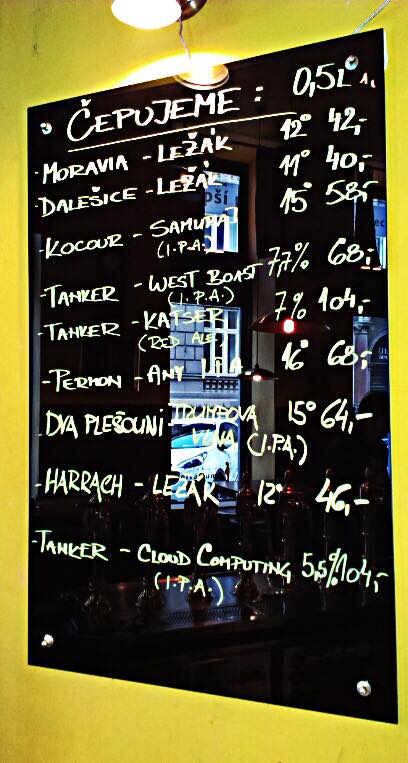 ČEPUJEME: 0,5L
-MORAVIA - LEŽÁK 12° 42,-
-DALEŠICE - LEŽÁK 11° 40,-
-KOCOUR - SAMURAJ 15° 58,-
(I.P.A.)
-TANKER - WEST BOAST 7,7% 68,-
(I.P.A.)
-TANKER - KATSER 7% 104,-
(RED ALE)
-PERMON - ANY I.P.A. 16° 68,-
DVA PLEŠOUNI TRUMFOVA 15° 64,-
VLNA (I.P.A.)
-HARRACH - LEŽÁK 12° 46,-
-TANKER - CLOUD COMPUTING 5,5% 104,-
(I.P.A.)